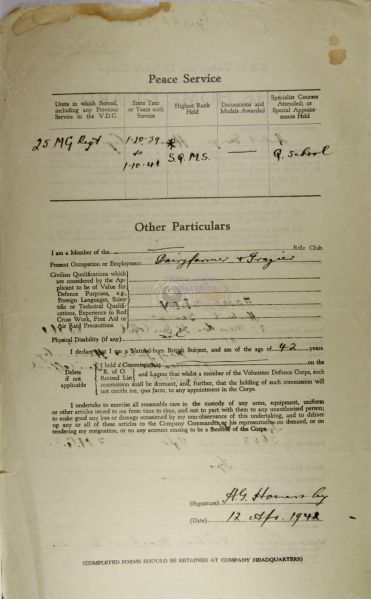 Peace Service
Units in which Served, including any Previous Service in the V.D.C.
State Year or Years such Service
Highest Rank Held
Decorations and Medals Awarded
Specialist Courses Attended; or Special Appointments Held
25 MG Regt
1-10-39
to
1-10-41
S.Q.M.S.
Q. School
Other Particulars
I am a Member of the Rifle Club
Present Occupation or Employment Dairyfarmer & Grazier
Civilian Qualifications which are considered by the Applicant to be of Value for Defence Purposes, e.g., Foreign Languages, Scientific or Technical Qualifications, Experience in Red Cross Work, First Aid or Air Raid Precautions
Physical Disability (if any) nil
I declare that I am a Natural-born British Subject, and am of the age of 42 years
Delete if not applicable
I hold a Commission on the
R. of O. and I agree that whilst a member of the Volunteer Defence Corps, such
Retired List commission shall be dormant, and, further, that the holding of such commission will
not entitle me, ipso facto, to any appointment in the Corps.
I undertake to exercise all reasonable care in the custody of any arms, equipment, uniform
or other articles issued to me from time to time, and not to part with them to any unauthorised person;
to make good any loss or damage occasioned by my non-observance of this undertaking, and to deliver
up any or all of these articles to the Company Commander or his representative on demand, or on
tendering my resignation, or on any account ceasing to be a Member of the Corps.
(Signature)
(Date) 12 Apr. 1942
(COMPLETED FORMS SHOULD BE RETAINED AT COMPANY HEADQUARTERS)